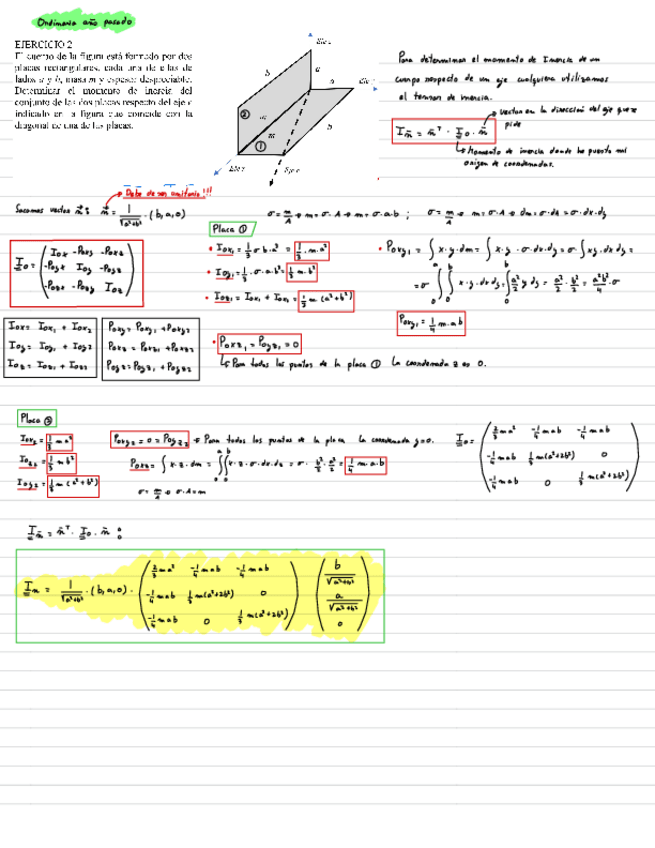 Ordinaria año pasado
EJERCICIO 2
El cuerpo de la figura está formado por dos
placas rectangulares, cada una de ellas de
lados a y b, masa m y espesor despreciable.
Determinar el momento de inercia del
conjunto de las dos placas respecto del eje e
indicado en la figura que coincide con la
diagonal de una de las placas.
b
a
a
b
m
m
②
①
Para determinar el momento de Inercia de un
cuerpo respecto de un eje cualquiera utilizamos
el tensor de inercia.
I_n = n̄ᵀ · I_o · n̄
vector en la dirección del eje que se
pide
Momento de inercia donde he puesto mi
origen de coordenadas.
Debe de ser unitario!!!
Sacamos vector n̄: n̄ = 1/√(a²+b²) · (b, a, 0)
σ = m/A → m = σ·A → m = σ·a·b ; σ = m/A → m = σ·A → dm = σ·da = σ·dx·dy
I_o = ( I_ox -P_oxy -P_oxz
-P_oyx I_oy -P_oyz
-P_ozx -P_ozy I_oz )
Placa ①
• I_ox₁ = 1/3 σ b·a³ = 1/3·m·a²
• I_oy₁ = 1/3·σ·a·b³ = 1/3 m·b²
• I_oz₁ = I_ox₁ + I_oy₁ = 1/3 m (a²+b²)
• P_oxz₁ = P_oyz₁ = 0
Para todos los puntos de la placa ① la coordenada z es 0.
• P_oxy₁ = ∫ x·y·dm = ∫ x·y·σ·dx·dy = σ·∫ xy·dx·dy =
= σ ∫₀ᵃ ∫₀ᵇ x·y·dx dy = ∫ a²/2 y dy = a²/2 · b²/2 = a²b²/4 · σ
P_oxy₁ = 1/4 m·a·b
I_ox = I_ox₁ + I_ox₂
I_oy = I_oy₁ + I_oy₂
I_oz = I_oz₁ + I_oz₂
P_oxy = P_oxy₁ + P_oxy₂
P_oxz = P_oxz₁ + P_oxz₂
P_oyz = P_oyz₁ + P_oyz₂
Placa ②
I_ox₂ = 1/3 m a²
I_oz₂ = 1/3 m b²
I_oy₂ = 1/3 m (a²+b²)
P_oxy₂ = 0 = P_oyz₂ → Para todos los puntos de la placa la coordenada y=0.
P_oxz₂ = ∫ x·z·dm = ∫₀ᵃ∫₀ᵇ x·z·σ·dx·dz = σ · b²/2 · a²/2 = 1/4 m·a·b
σ = m/A → σ·A = m
I_o = ( 2/3 ma² -1/4 mab -1/4 mab
-1/4 mab 1/3 m(a²+2b²) 0
-1/4 mab 0 1/3 m(a²+2b²) )
I_n = n̄ᵀ · I_o · n̄ :
I_n = 1/√(a²+b²) · (b, a, 0) · ( 2/3 ma² -1/4 mab -1/4 mab
-1/4 mab 1/3 m(a²+2b²) 0
-1/4 mab 0 1/3 m(a²+2b²) ) ( b/√(a²+b²)
a/√(a²+b²)
0 )